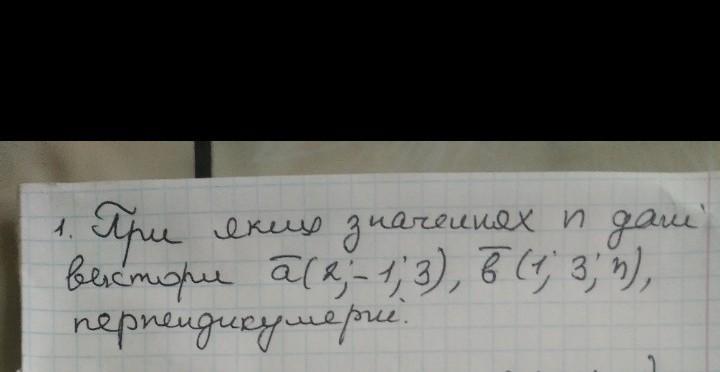 1. При яких значеннях n дані
вектори a̅(2; -1; 3), b̅(1; 3; n),
перпендикулярні.